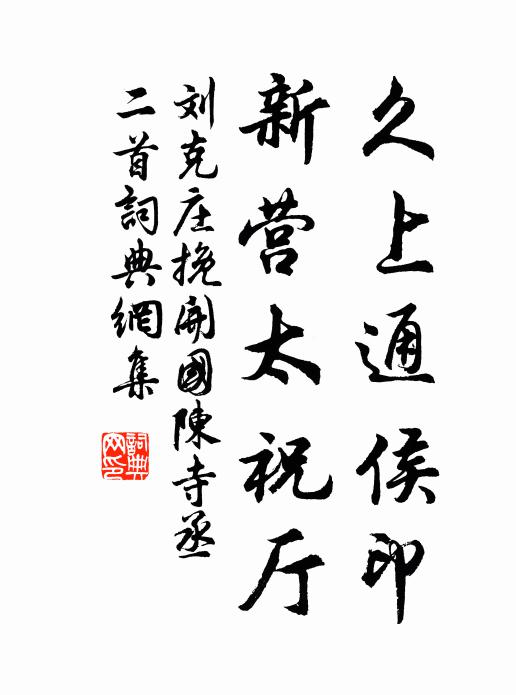 久上通侯印
新营太祝厅
刘克庄挽開國陳寺丞
二首詞典網集
詞典
网印